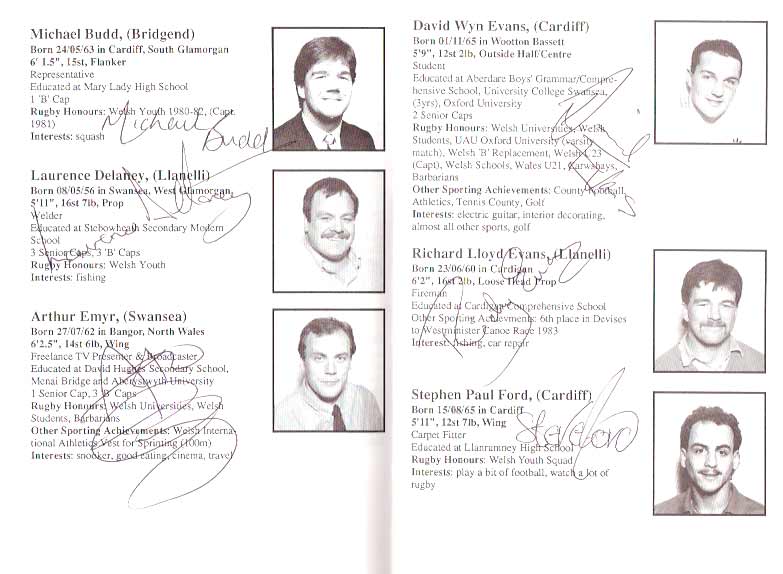 Michael Budd, (Bridgend)
Born 24/05/63 in Cardiff, South Glamorgan
6' 1.5", 15st, Flanker
Representative
Educated at Mary Lady High School
1 'B' Cap
Rugby Honours: Welsh Youth 1980-82, (Capt.
1981)
Interests: squash
Michael Budd
Laurence Delaney, (Llanelli)
Born 08/05/56 in Swansea, West Glamorgan,
5'11", 16st 7lb, Prop
Welder
Educated at Stebowheath Secondary Modern
School
3 Senior Caps, 3 'B' Caps
Rugby Honours: Welsh Youth
Interests: fishing
Laurence Delaney
Arthur Emyr, (Swansea)
Born 27/07/62 in Bangor, North Wales
6'2.5", 14st 6lb, Wing
Freelance TV Presenter & Broadcaster
Educated at David Hughes Secondary School,
Menai Bridge and Aberyswyth University
1 Senior Cap, 3 'B' Caps
Rugby Honours: Welsh Universities, Welsh
Students, Barbarians
Other Sporting Achievements: Welsh Interna-
tional Athletics Vest for Sprinting (100m)
Interests: snooker, good eating, cinema, travel
David Wyn Evans, (Cardiff)
Born 01/11/65 in Wootton Bassett
5'9", 12st 2lb, Outside Half/Centre
Student
Educated at Aberdare Boys' Grammar/Compre-
hensive School, University College Swansea,
(3yrs), Oxford University
2 Senior Caps
Rugby Honours: Welsh Universities, Welsh
Students, UAU Oxford University (varsity
match), Welsh 'B' Replacement, Welsh U23
(Capt), Welsh Schools, Wales U21, Crawshays,
Barbarians
Other Sporting Achievements: County Football,
Athletics, Tennis County, Golf
Interests: electric guitar, interior decorating,
almost all other sports, golf
Richard Lloyd Evans, (Llanelli)
Born 23/06/60 in Cardigan
6'2", 16st 2lb, Loose Head Prop
Fireman
Educated at Cardigan Comprehensive School
Other Sporting Achievments: 6th place in Devises
to Westminister Canoe Race 1983
Interest: fishing, car repair
Stephen Paul Ford, (Cardiff)
Born 15/08/65 in Cardiff
5'11", 12st 7lb, Wing
Carpet Fitter
Educated at Llanrumney High School
Rugby Honours: Welsh Youth Squad
Interests: play a bit of football, watch a lot of
rugby
Steve Ford